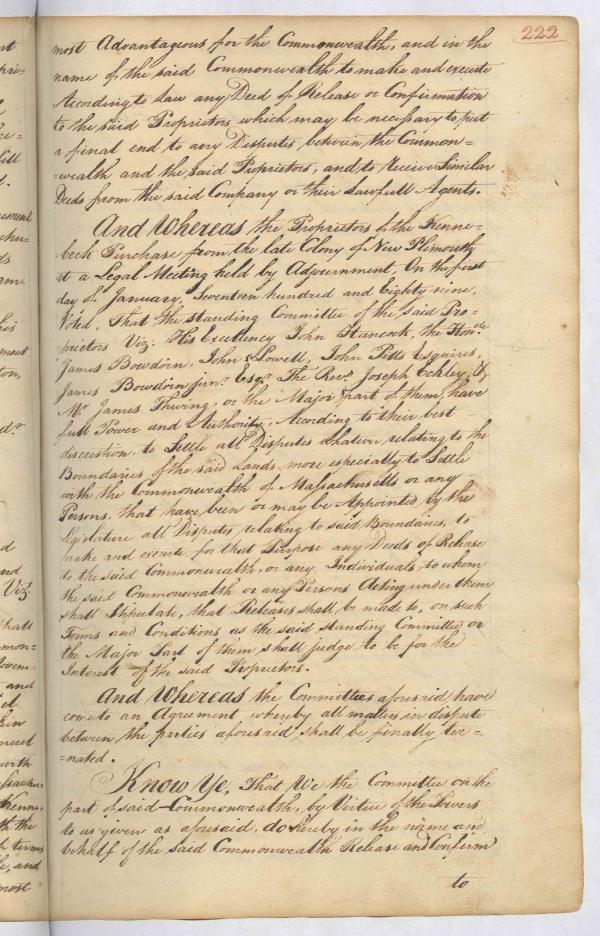 222
most Advantageous for the Commonwealth, and in the
name of the said Commonwealth to make and execute
According to Law any Deed of Release or Confirmation
to the said Proprietors which may be necessary to put
a final end to any Disputes between the Common=
=wealth and the said Proprietors, and to receive Similar
Deeds from the said Company or their Lawfull Agents.
And Whereas the Proprietors of the Kenne=
beck Purchase from the late Colony of New Plimouth
at a Legal Meeting held by Adjournment, On the first
day of January, Seventeen hundred and Eighty nine,
Voted, That the standing Committee of the said Pro=
prietors Viz: His Excellency John Hancock, the Honble
James Bowdoin, John Lowell, John Pitts Esquires,
James Bowdoin junr. Esqr. The Revd. Joseph Eckley, &
Mr. James Thwing, or the Major part of them, have
full Power and Authority, According to their best
discretion, to Settle all Disputes whatever, relating to the
Boundaries of the said Lands, more especially to Settle
with the Commonwealth of Massachusetts or any
Persons, that have been or may be Appointed by the
Legislature all Disputes relating to said Boundaries, to
make and execute for that Purpose any Deeds of Release
to the said Commonwealth, or any Individuals, to whom
the said Commonwealth or any Persons Acting under them
shall Stipulate, that Releases shall be made to, on such
Terms and Conditions as the said standing Committee or
the Major Part of them shall judge to be for the
Interest of the said Proprietors.
And Whereas the Committees aforesaid have
come to an Agreement, whereby all matters in dispute
between the parties aforesaid, shall be finally ter=
=nated.
Know Ye, That We the Committee on the
part of said Commonwealth, by Virtue of the Powers
to us given as aforesaid, do hereby in the name and
behalf of the said Commonwealth Release and Confirm
to